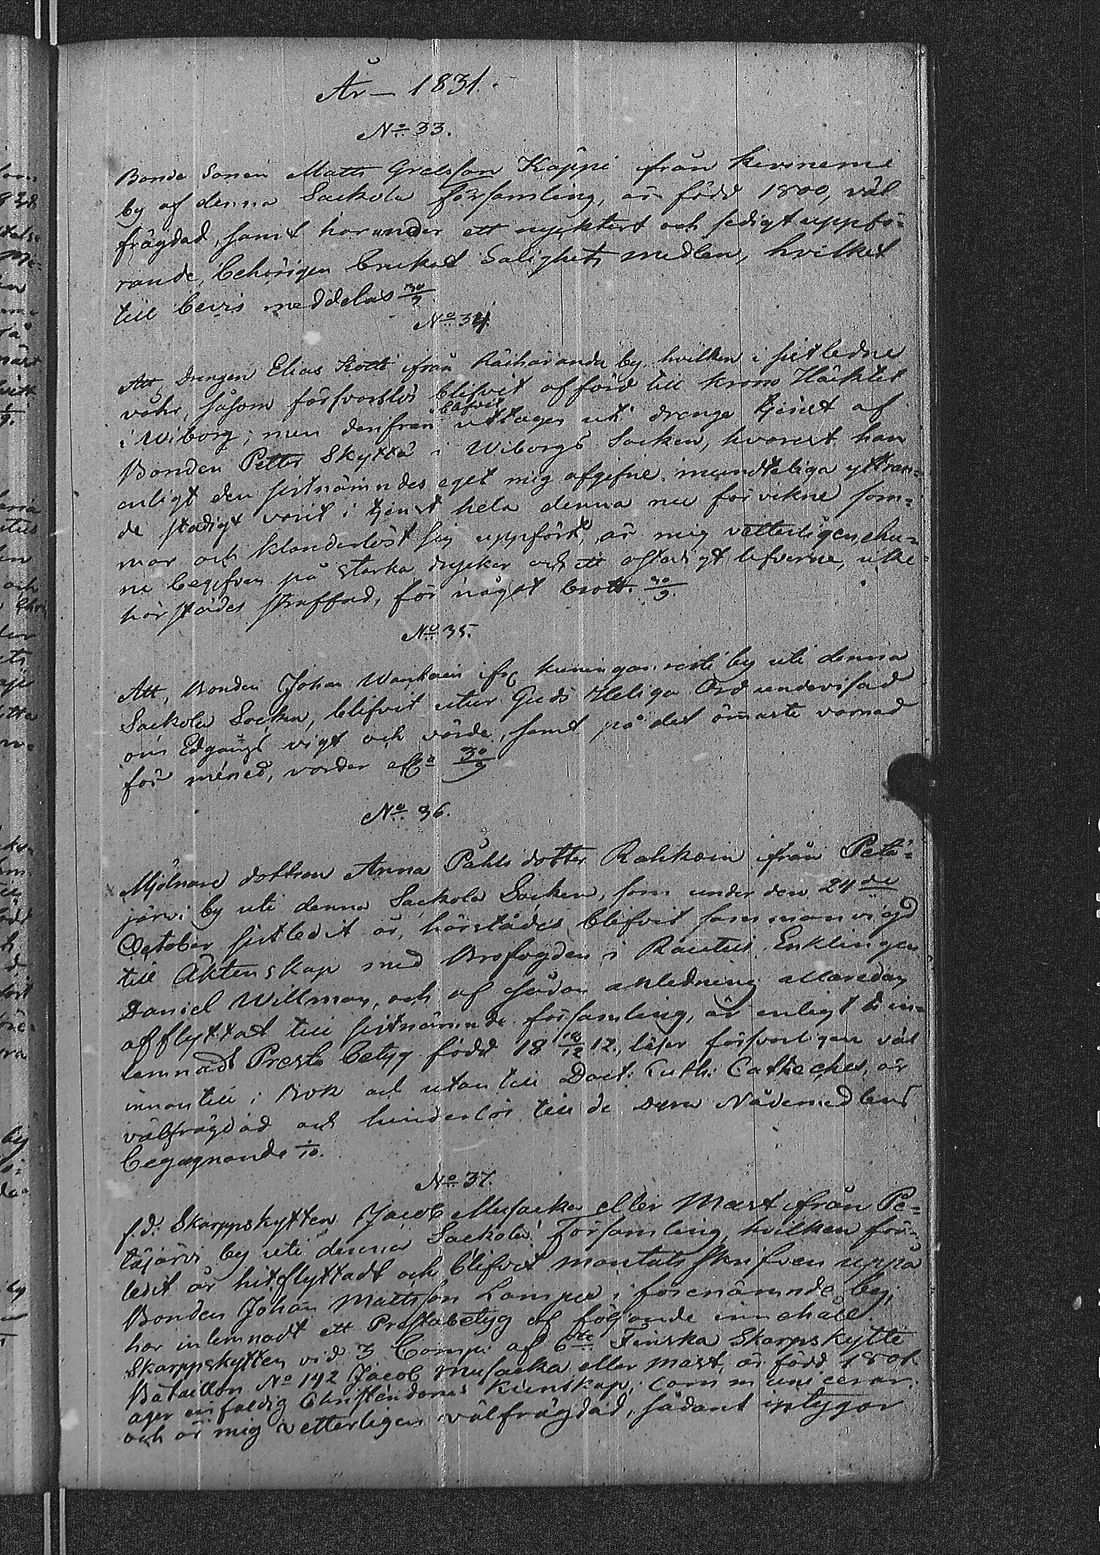 År — 1831.
No 33.
Bonde Sonen Matts Gretsson Käppi från
by af denna Sackola församling, är född 1800, väl
frägdad, samt har under ett nycktert och sedigt uppfö-
rande, behörigen brukat Salighets medlen, hvilket
till bevis meddelas 30/9
No 34
Att Drengen Elias Kotti från by, hvilken i sistledne
såsom försvarslös blifvit afförd till krono Häcktet
i Wiborg; men derifrån blifvit uttagen uti drenge tjenst af
Bonden Petter Skyttä i Wiborgs Socken, hvarest han
enligt den sistnämndes eget mig afgifne mundteliga yttran-
de stadigt varit i tjenst hela denna nu förvekne som-
mar och klanderlöst sig uppfört, är mig vetterligen
begifven på starka drycker och ett lefverne, icke
härstädes straffad, för något brott. 30/9.
No 35.
Att, Bonden Johan Wanhain fr. by uti denna
Sackola Socken, blifvit utur Guds Heliga Ord undervisad
om Edgångs vigt och värde, samt på det ömmaste varnad
för mened, varder 30/9
No 36.
Mjölnare dottren Anna Påhls dotter Rahkoin från Petä-
järvi by uti denna Sackola Socken, som under den 24de
October sistledit år, härstädes blifvit sammanvigd
till Äktenskap med Brofogden i Rautus Enklingen
Daniel Willman, och af sådan anledning allaredan
afflyttat till sistnämnde församling, är enligt in-
lemnadt Preste betyg född 18 10/12 12, läser försvarligen väl
innantill i Bok och utantill Doct: Luth: Catheches, är
välfrägdad och hinderlös till de Dyra Nådemedlens
begagnande 1/10.
No 37.
f.d. Skarppskytten Jacob Musacka eller Mast från Pe-
täjärvi by uti denna Sackola Församling, hvilken för-
ledit år hitflyttadt och blifvit mantalsskrifven uppå
Bonden Johan Mattsson Lamppu i förenämnde by,
har inlemnadt ett Prestabetyg af följande innehåll:
Skarppskytten vid 3 Comp: af 6te Finska Skarpskytte
Bataillon No 142 Jacob Musacka eller Mast, är född 1801
äger enfaldig Christendoms Kunskap, communicerar
och är mig vetterligen välfrägdad, sådant intygar